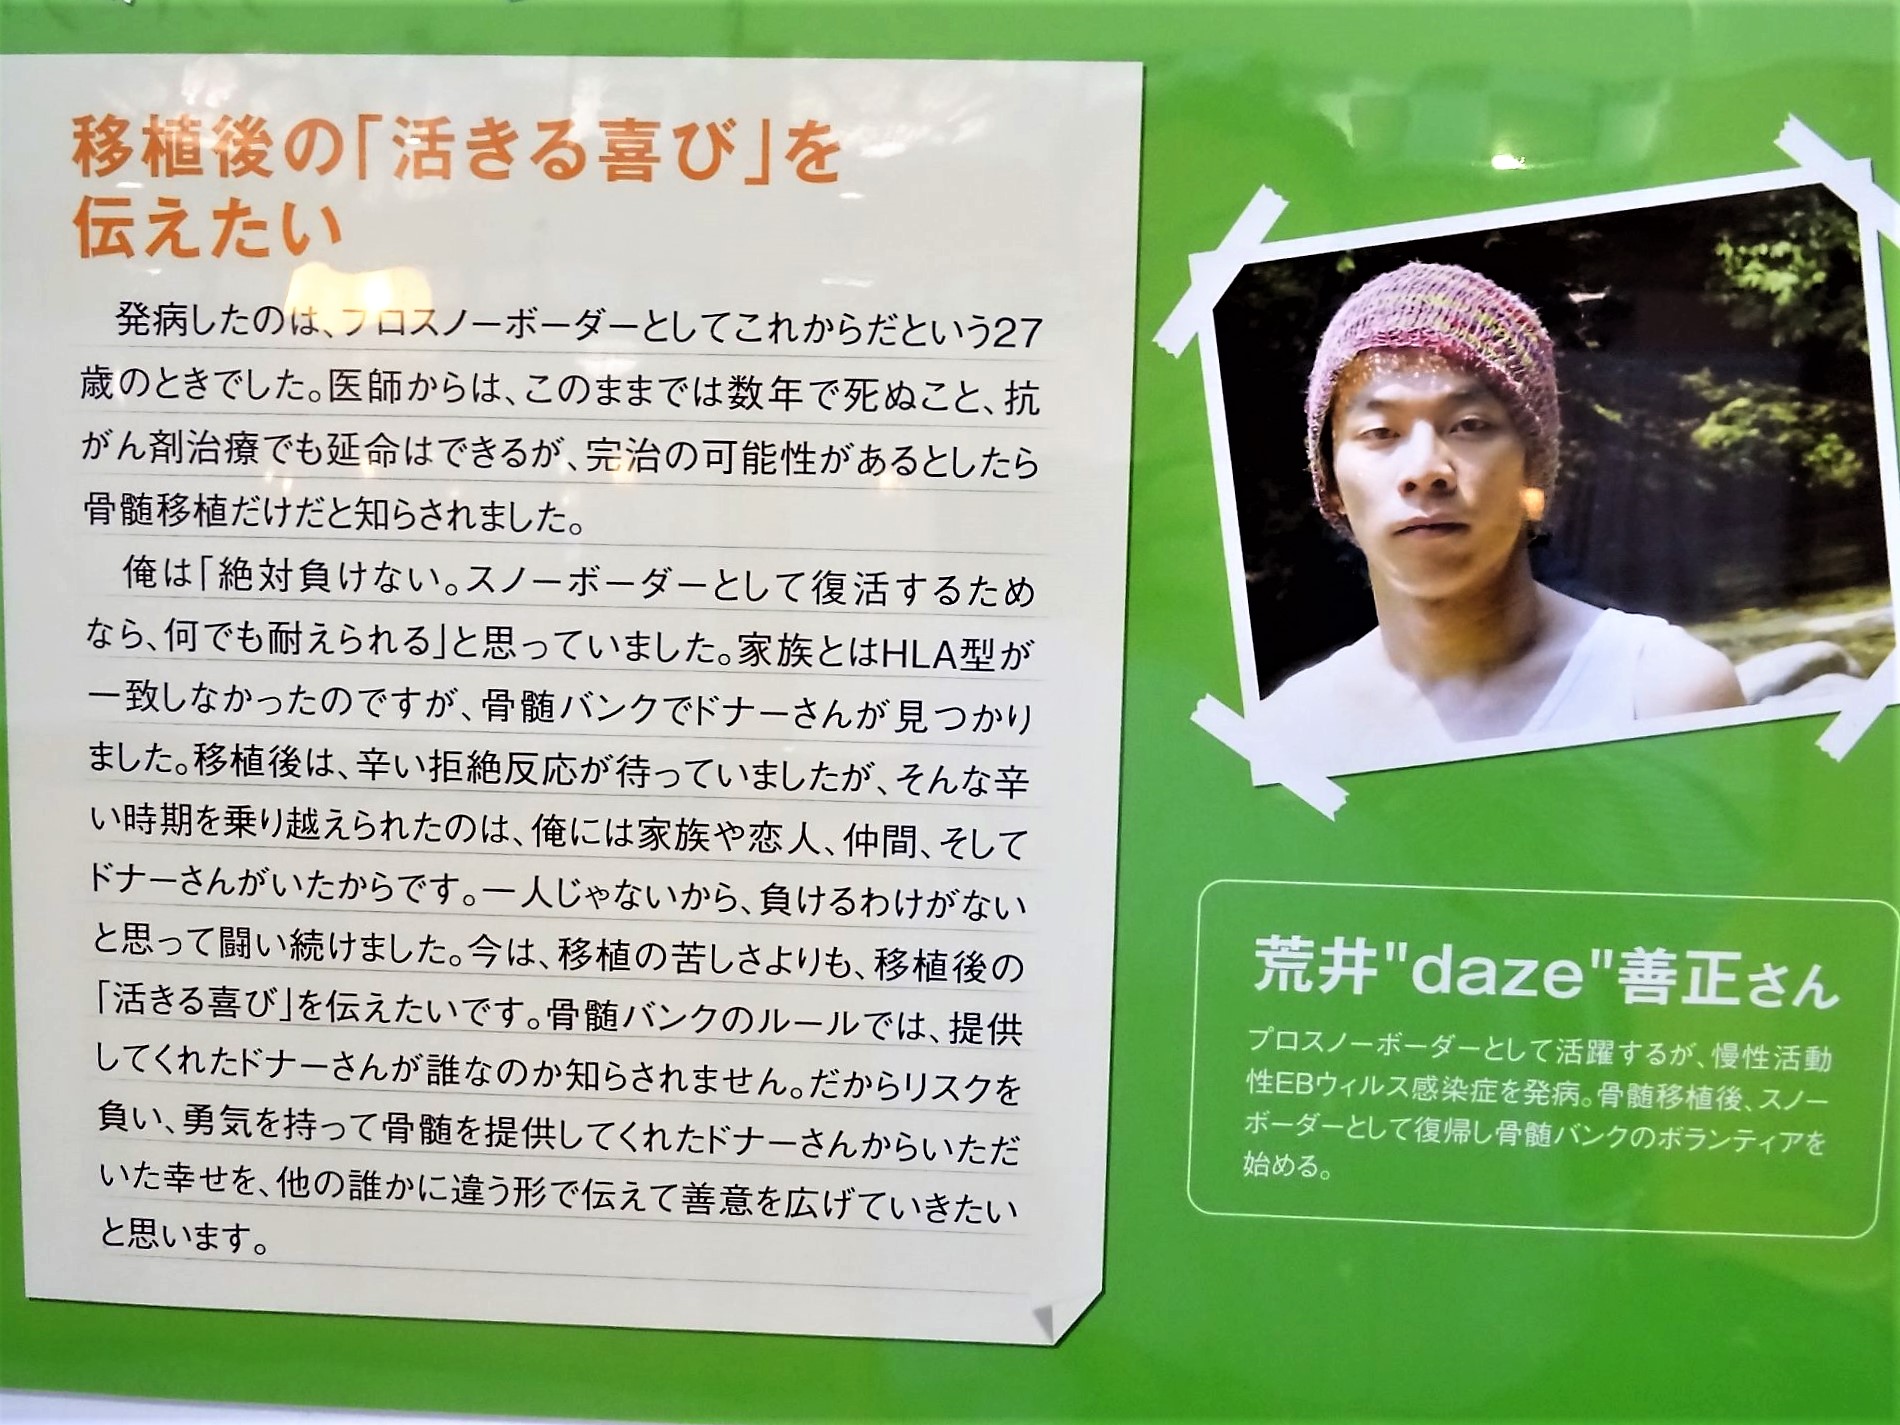 移植後の「活きる喜び」を
伝えたい
発病したのは、プロスノーボーダーとしてこれからだという27
歳のときでした。医師からは、このままでは数年で死ぬこと、抗
がん剤治療でも延命はできるが、完治の可能性があるとしたら
骨髄移植だけだと知らされました。
俺は「絶対負けない。スノーボーダーとして復活するため
なら、何でも耐えられる」と思っていました。家族とはHLA型が
一致しなかったのですが、骨髄バンクでドナーさんが見つかり
ました。移植後は、辛い拒絶反応が待っていましたが、そんな辛
い時期を乗り越えられたのは、俺には家族や恋人、仲間、そして
ドナーさんがいたからです。一人じゃないから、負けるわけがない
と思って闘い続けました。今は、移植の苦しさよりも、移植後の
「活きる喜び」を伝えたいです。骨髄バンクのルールでは、提供
してくれたドナーさんが誰なのか知らされません。だからリスクを
負い、勇気を持って骨髄を提供してくれたドナーさんからいただ
いた幸せを、他の誰かに違う形で伝えて善意を広げていきたい
と思います。
荒井"daze"善正さん
プロスノーボーダーとして活躍するが、慢性活動
性EBウィルス感染症を発病。骨髄移植後、スノー
ボーダーとして復帰し骨髄バンクのボランティアを
始める。